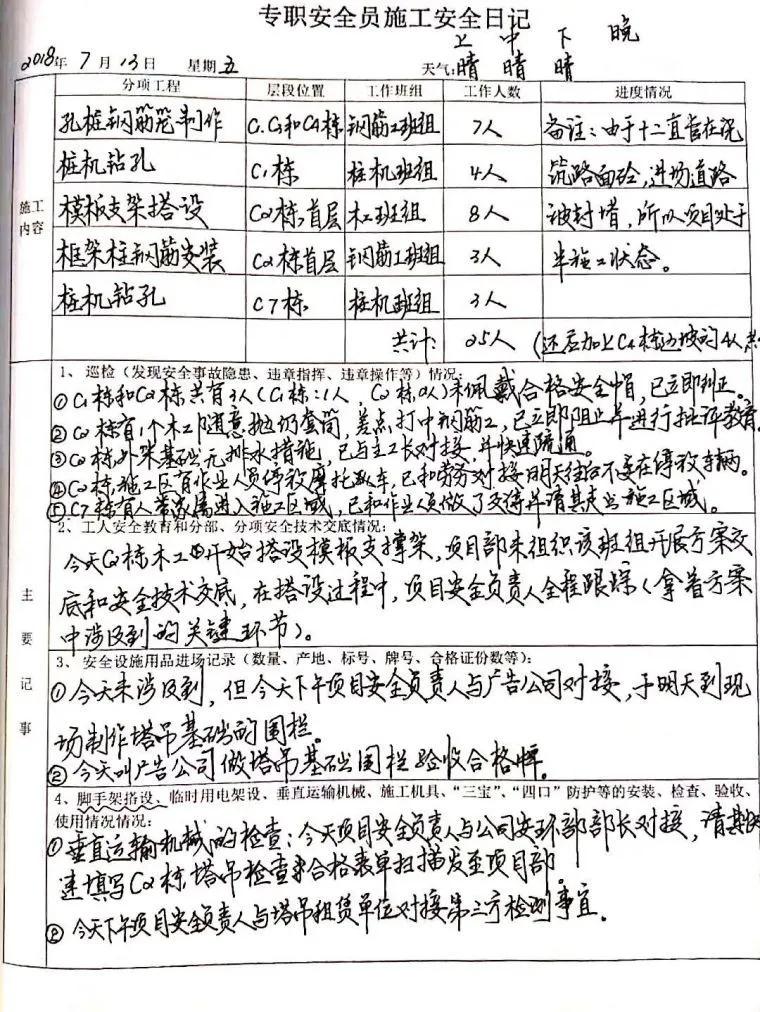 专职安全员施工安全日记
上 中 下 晚
2018年 7 月 13日 星期 五 天气:晴 晴 晴
分项工程 层段位置 工作班组 工作人数 进度情况
孔桩钢筋笼制作 C1.C3和C4栋 钢筋工班组 7人 备注:由于十二直管在浇
桩机钻孔 C1栋 桩机班组 4人 筑路面砼,进场道路
施工内容
模板支架搭设 C2栋,首层 木工班组 8人 被封堵,所以项目处于
框架柱钢筋安装 C2栋首层 钢筋工班组 3人 半施工状态。
桩机钻孔 C7栋 桩机班组 3人
共计: 25人 (还应加上C4栋边坡的4人
主要记事
1、巡检(发现安全事故隐患、违章指挥、违章操作等)情况:
① C1栋和C2栋共有3人(C1栋:1人, C2栋 2人)未佩戴合格安全帽,已立即纠正。
② C2栋有1个木工随意抛扔套筒,差点打中钢筋工,已立即阻止并进行批评教育
③ C2栋外架基础无排水措施,已与主工长对接,并快速疏通。
④ C2栋施工区有作业人员停放摩托车,已和劳务对接明天往后不要在停放车辆。
⑤ C7栋有人带家属进入施工区域,已和作业人员做了交待并请其走出施工区域。
2、工人安全教育和分部、分项安全技术交底情况:
今天C2栋木工开始搭设模板支撑架,项目部未组织该班组开展方案交
底和安全技术交底,在搭设过程中,项目安全负责人全程跟踪(拿着方案
中涉及到的关键环节)。
3、安全设施用品进场记录(数量、产地、标号、牌号、合格证份数等):
① 今天未涉及到,但今天下午项目安全负责人与广告公司对接,于明天到现
场制作塔吊基础的围栏。
② 今天叫广告公司做塔吊基础围栏验收合格牌。
4、脚手架搭设、临时用电架设、垂直运输机械、施工机具、“三宝”、“四口”防护等的安装、检查、验收、
使用情况情况:
① 垂直运输机械的检查:今天项目安全负责人与公司安环部部长对接,请其快
速填写C2栋塔吊检查合格表单扫描发至项目部。
② 今天下午项目安全负责人与塔吊租赁单位对接第三方检测事宜.